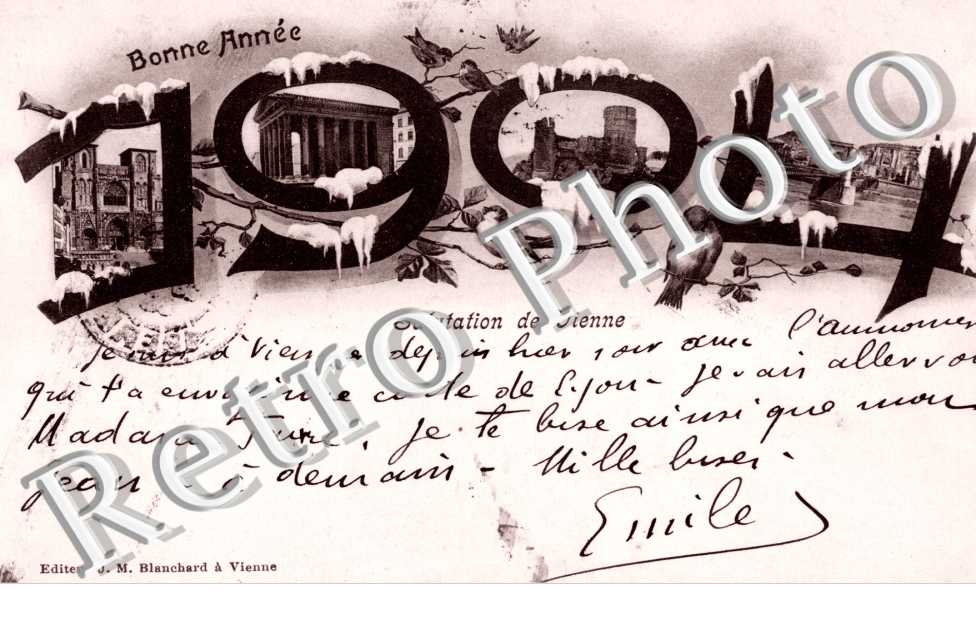 Bonne Année
1904
Salutation de Vienne
Je suis à Vienne depuis hier soir avec l'aumonier
qui t'a envoyé une carte de Lyon - je vais aller voir
Madame. Je te bise ainsi que mon
Jean à demain - Mille bises -
Emile
Editeur J. M. Blanchard à Vienne
Retro Photo